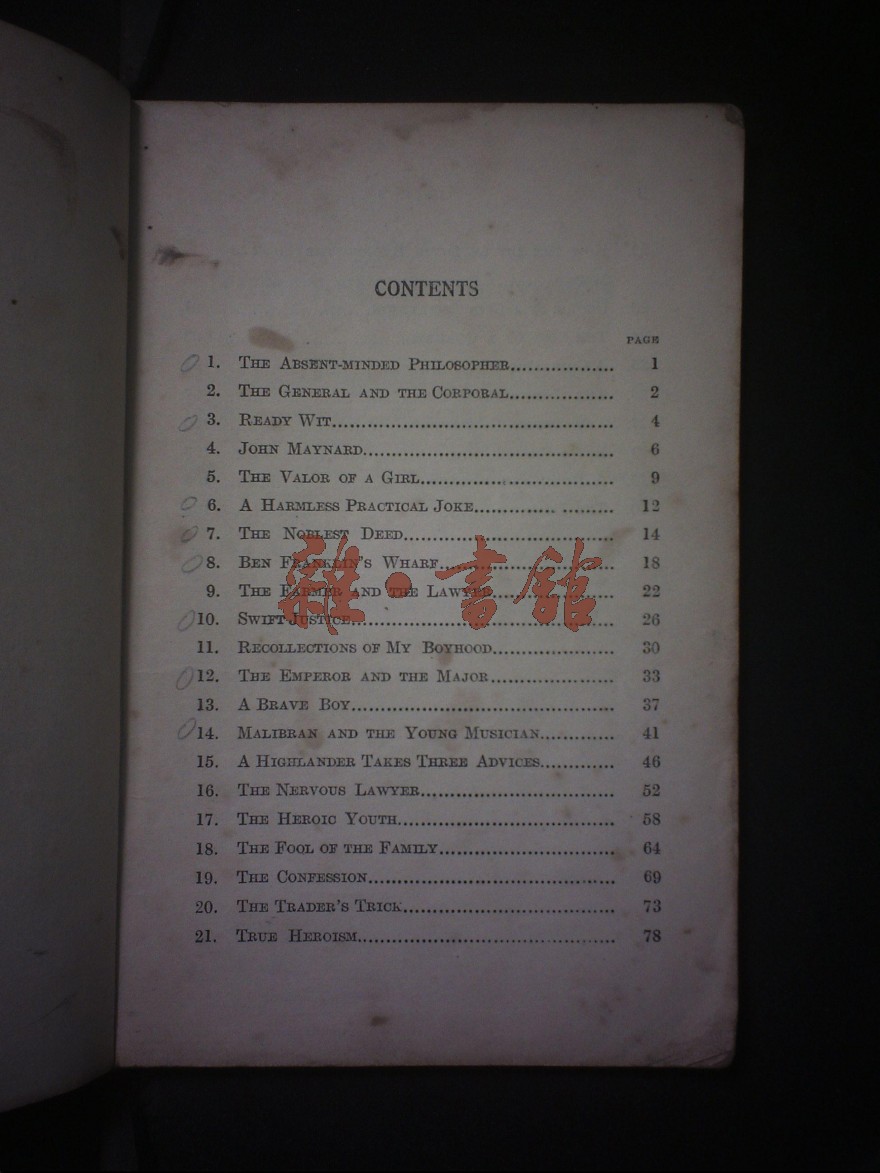 CONTENTS
PAGE
1. THE ABSENT-MINDED PHILOSOPHER.................. 1
2. THE GENERAL AND THE CORPORAL.................. 2
3. READY WIT................................................ 4
4. JOHN MAYNARD........................................... 6
5. THE VALOR OF A GIRL................................. 9
6. A HARMLESS PRACTICAL JOKE.............. ......... 12
7. THE NOBLEST DEED.................................... 14
8. BEN FRANKLIN'S WHARF.............................. 18
9. THE FARMER AND THE LAWYER..................... 22
10. SWIFT JUSTICE............................................. 26
11. RECOLLECTIONS OF MY BOYHOOD..................... 30
12. THE EMPEROR AND THE MAJOR..................... 33
13. A BRAVE BOY............................................. 37
14. MALIBRAN AND THE YOUNG MUSICIAN............. 41
15. A HIGHLANDER TAKES THREE ADVICES............. 46
16. THE NERVOUS LAWYER................................. 52
17. THE HEROIC YOUTH..................................... 58
18. THE FOOL OF THE FAMILY.............................. 64
19. THE CONFESSION.......................................... 69
20. THE TRADER'S TRICK.................................... 73
21. TRUE HEROISM............................................ 78
雜·書館